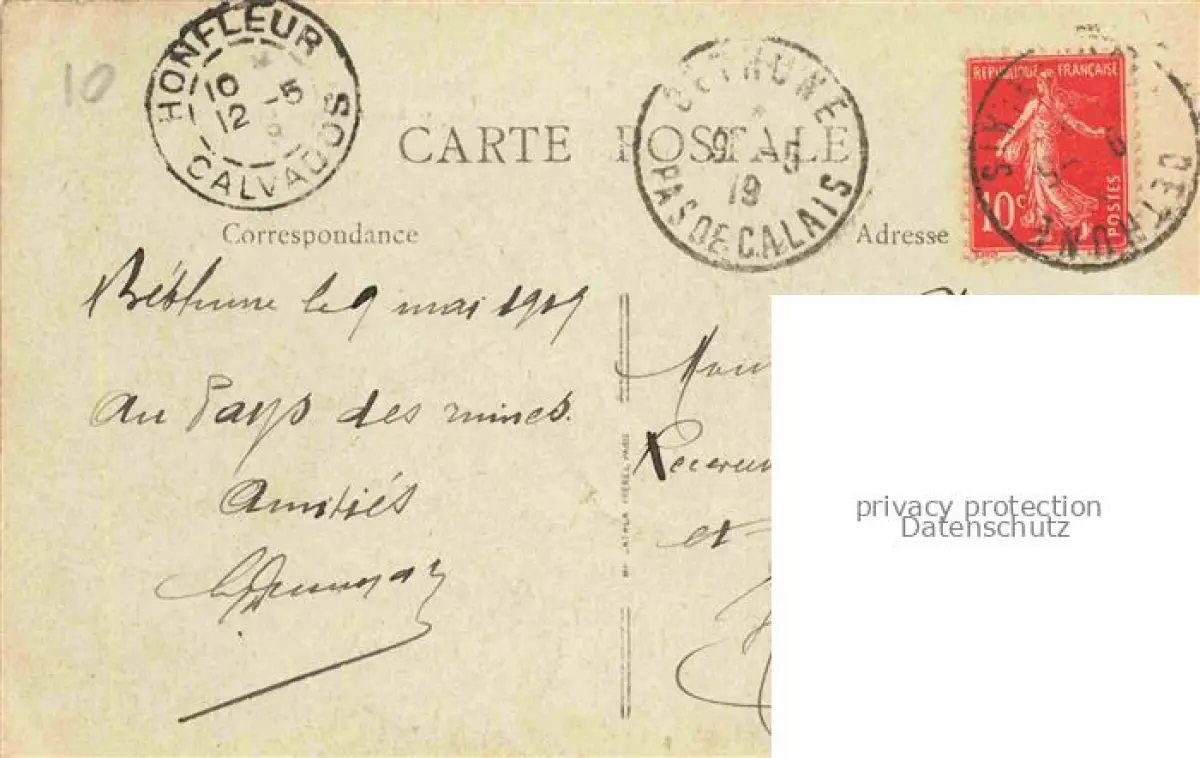 10
HONFLEUR
10 - 5
12
CALVADOS
CARTE POSTALE
BETHUNE
9 - 5
19
PAS DE CALAIS
REPUBLIQUE FRANÇAISE
10 c
POSTES
BETHUNE
Correspondance
Adresse
Béthune le 9 mai 1919
au Pays des mines.
Amitiés
et
privacy protection
Datenschutz